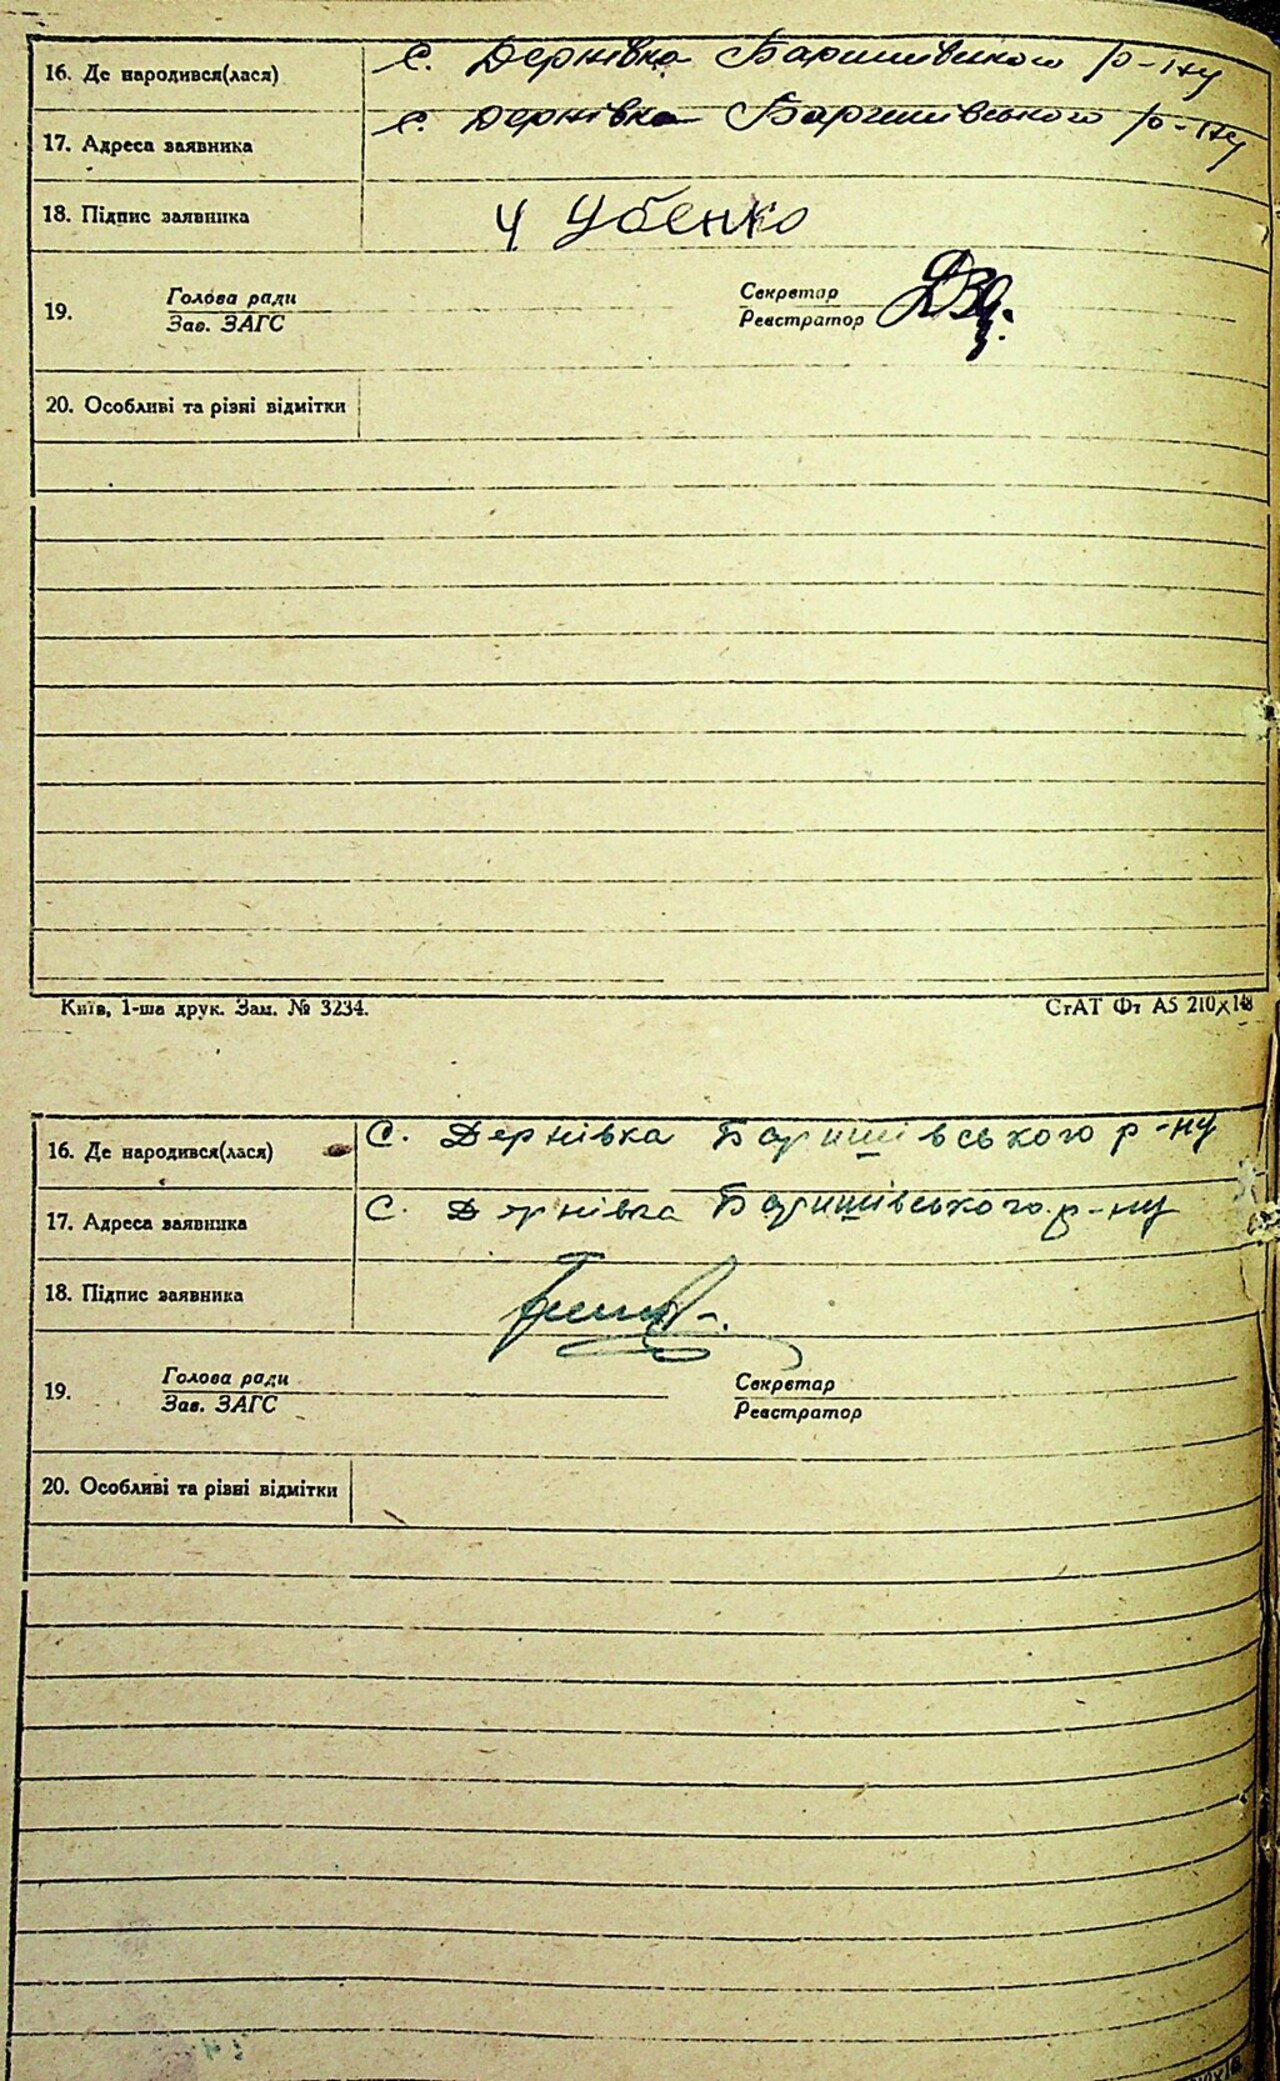 16. Де народився(лася) с. Дернівка Баришівського р-ну
17. Адреса заявника с. Дернівка Баришівського р-ну
18. Підпис заявника Ч Убенко
19. Голова ради Секретар
Зав. ЗАГС Реєстратор
20. Особливі та різні відмітки
Київ, 1-ша друк. Зам. № 3234. СтАТ Фт А5 210×148
16. Де народився(лася) С. Дернівка Баришівського р-ну
17. Адреса заявника С. Дернівка Баришівського р-ну
18. Підпис заявника
19. Голова ради Секретар
Зав. ЗАГС Реєстратор
20. Особливі та різні відмітки